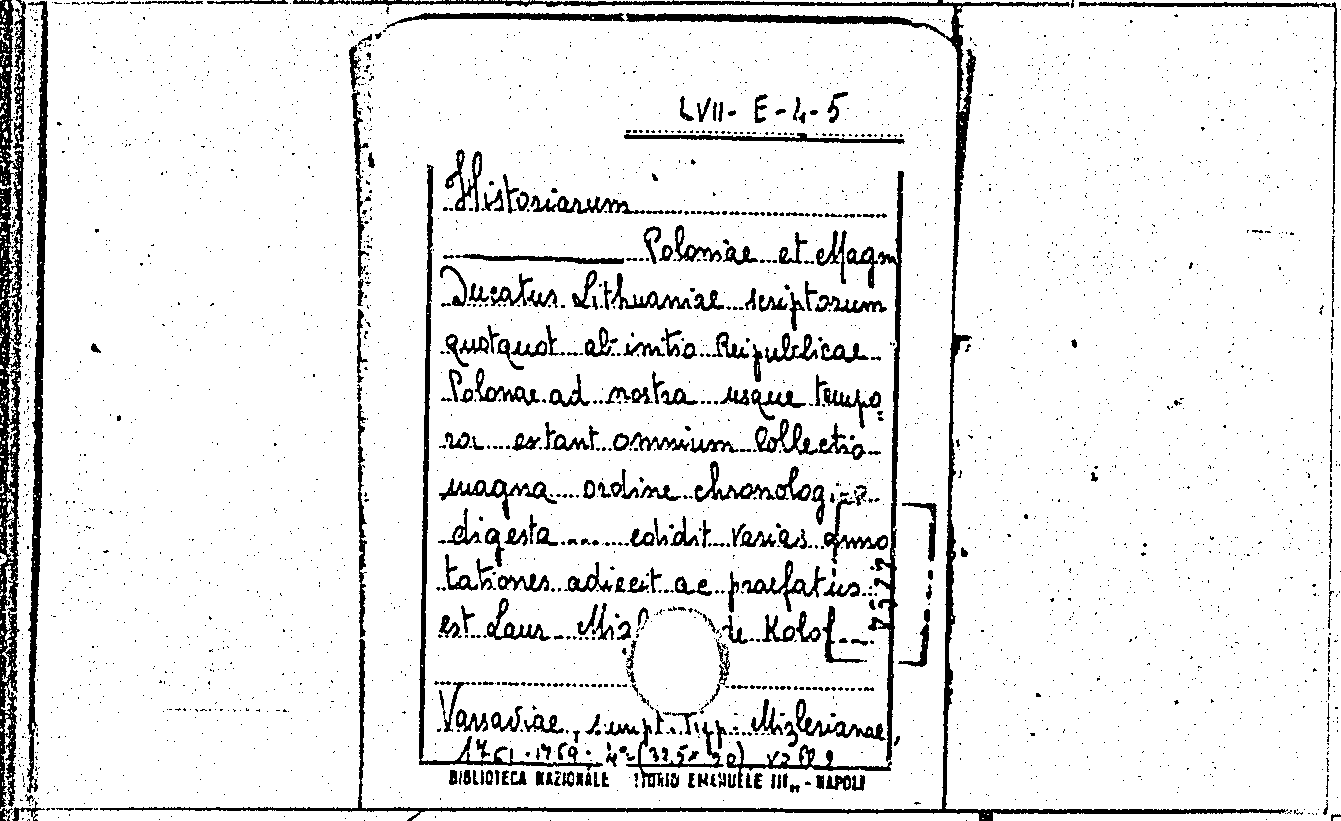 LVII- E-4-5
Historiarum
Poloniae et Magni
Ducatus Lithuaniae scriptorum
quotquot ab initio Reipublicae
Polonae ad nostra usque tempo
ra extant omnium Collectio
magna ordine chronologico
digesta ... edidit varias anno
tationes adiecit ac praefatus
est Laur Mizl de Kolof
Varsaviae, sumpt. typ. Mizlerianae,
1761-1769: 4°-(32,5x20)
BIBLIOTECA NAZIONALE TTORIO EMANUELE III„ - NAPOLI